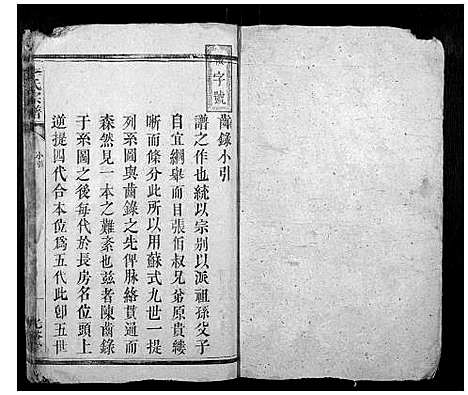 字號
齒錄小引
譜之作也統以宗别以派祖孫父子
自宜綱舉而目張伯叔兄弟原貴縷
晰而條分此所以用蘇式九世一提
列系圖與齒錄之先俾脉絡貫通而
森然見一本之難紊也兹者陳齒錄
于系圖之後每代於長房名位頭上
逆提四代合本位爲五代此卽五世
氏宗譜
小引